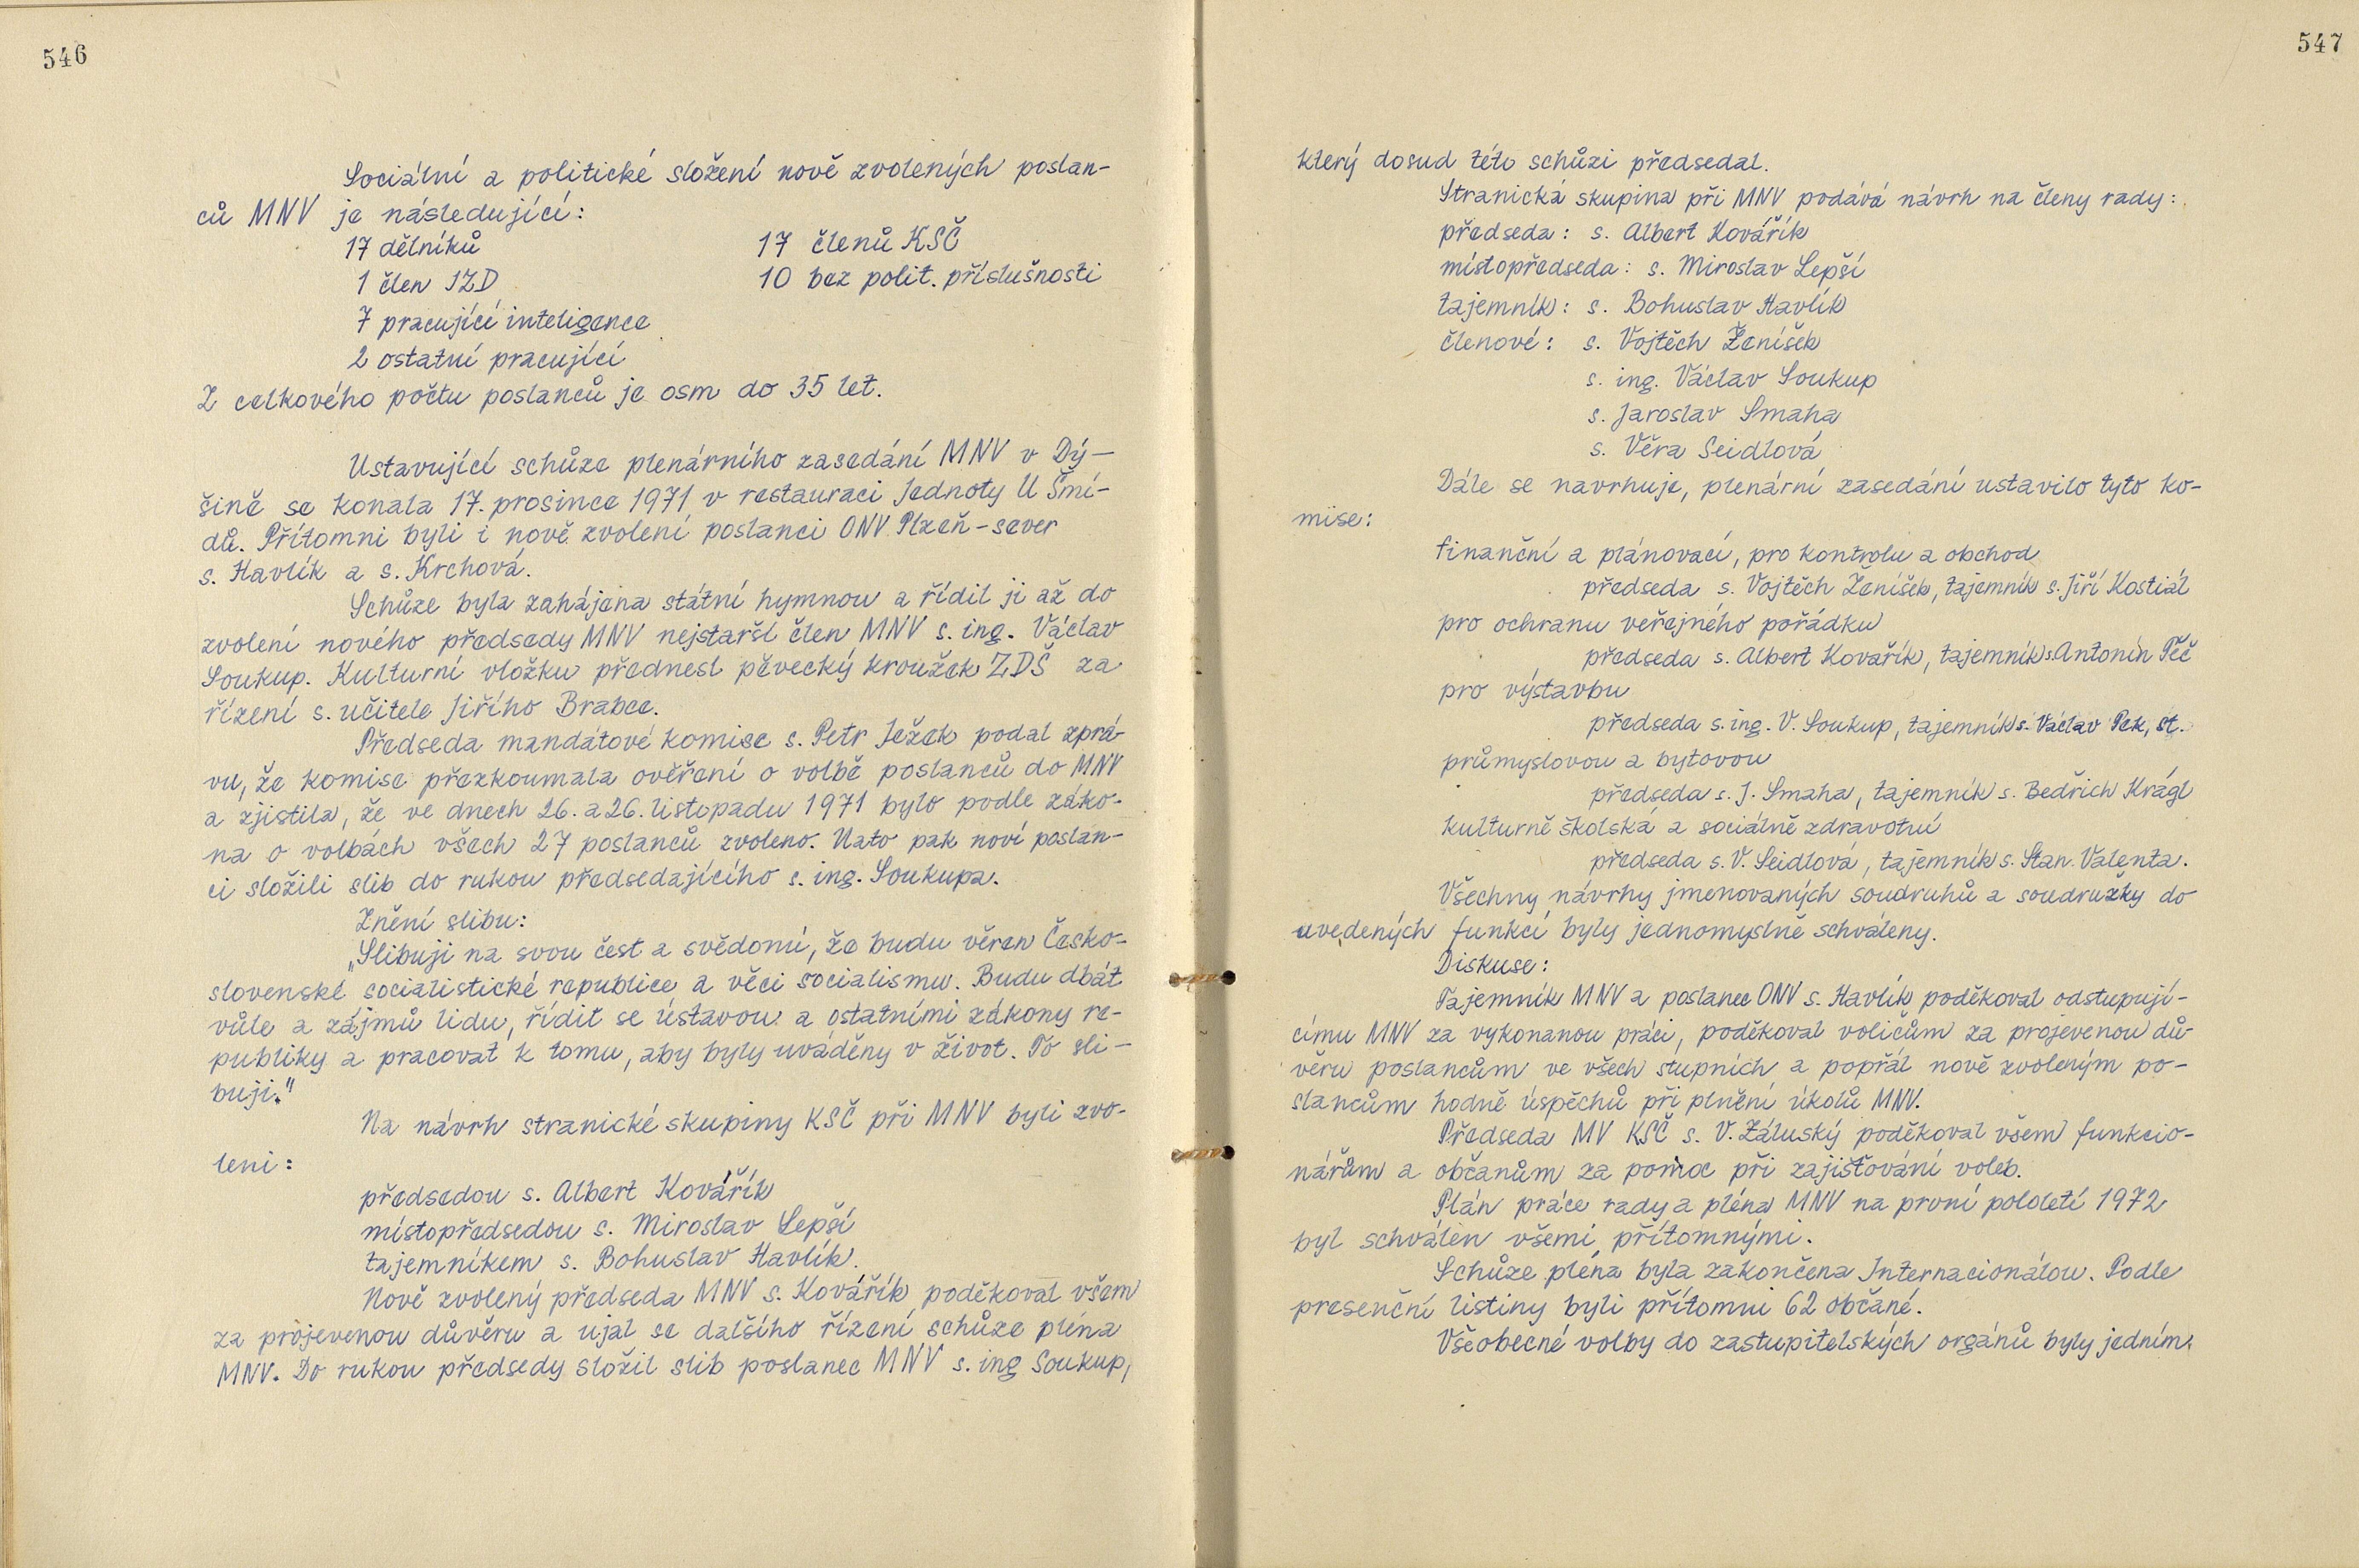 546
Sociální a politické složení nově zvolených poslan-
ců MNV je následující:
17 dělníků 17 členů KSČ
1 člen JZD 10 bez polit. příslušnosti
7 pracující inteligence
2 ostatní pracující
Z celkového počtu poslanců je osm do 35 let.
Ustavující schůze plenárního zasedání MNV v Dý-
šině se konala 17. prosince 1971 v restauraci Jednoty U Šmí-
dů. Přítomni byli i nově zvolení poslanci ONV Plzeň-sever
s. Havlík a s. Krchová.
Schůze byla zahájena státní hymnou a řídil ji až do
zvolení nového předsedy MNV nejstarší člen MNV s. ing. Václav
Soukup. Kulturní vložku přednesl pěvecký kroužek ZDŠ za
řízení s. učitele Jiřího Brabce.
Předseda mandátové komise s. Petr Ježek podal zprá-
vu, že komise přezkoumala ověření o volbě poslanců do MNV
a zjistila, že ve dnech 26. a 26. listopadu 1971 bylo podle záko-
na o volbách všech 27 poslanců zvoleno. Nato pak noví poslan-
ci složili slib do rukou předsedajícího s. ing. Soukupa.
Znění slibu:
„Slibuji na svou čest a svědomí, že budu věren Česko-
slovenské socialistické republice a věci socialismu. Budu dbát
vůle a zájmů lidu, řídit se ústavou a ostatními zákony re-
publiky a pracovat k tomu, aby byly uváděny v život. To sli-
buji."
Na návrh stranické skupiny KSČ při MNV byli zvo-
leni:
předsedou s. Albert Kovářík
místopředsedou s. Miroslav Lepší
tajemníkem s. Bohuslav Havlík.
Nově zvolený předseda MNV s. Kovářík poděkoval všem
za projevenou důvěru a ujal se dalšího řízení schůze pléna
MNV. Do rukou předsedy složil slib poslanec MNV s. ing Soukup,
547
který dosud této schůzi předsedal.
Stranická skupina při MNV podává návrh na členy rady:
předseda: s. Albert Kovářík
místopředseda: s. Miroslav Lepší
tajemník: s. Bohuslav Havlík
členové: s. Vojtěch Ženíšek
s. ing. Václav Soukup
s. Jaroslav Smaha
s. Věra Seidlová
Dále se navrhuje, plenární zasedání ustavilo tyto ko-
mise:
finanční a plánovací, pro kontrolu a obchod
předseda s. Vojtěch Ženíšek, tajemník s. Jiří Kostiál
pro ochranu veřejného pořádku
předseda s. Albert Kovářík, tajemník s. Antonín Peč
pro výstavbu
předseda s. ing. V. Soukup, tajemník s. Václav Pek, st.
průmyslovou a bytovou
předseda s. J. Smaha, tajemník s. Bedřich Krágl
kulturně školská a sociálně zdravotní
předseda s. V. Seidlová, tajemník s. Stan. Valenta.
Všechny návrhy jmenovaných soudruhů a soudružky do
uvedených funkcí byly jednomyslně schváleny.
Diskuse:
Tajemník MNV a poslanec ONV s. Havlík poděkoval odstupují-
címu MNV za vykonanou práci, poděkoval voličům za projevenou dů-
věru poslancům ve všech stupních a popřál nově zvoleným po-
slancům hodně úspěchů při plnění úkolů MNV.
Předseda MV KSČ s. V. Záluský poděkoval všem funkcio-
nářům a občanům za pomoc při zajišťování voleb.
Plán práce rady a pléna MNV na první pololetí 1972
byl schválen všemi přítomnými.
Schůze pléna byla zakončena Internacionálou. Podle
presenční listiny byli přítomni 62 občané.
Všeobecné volby do zastupitelských orgánů byly jedním